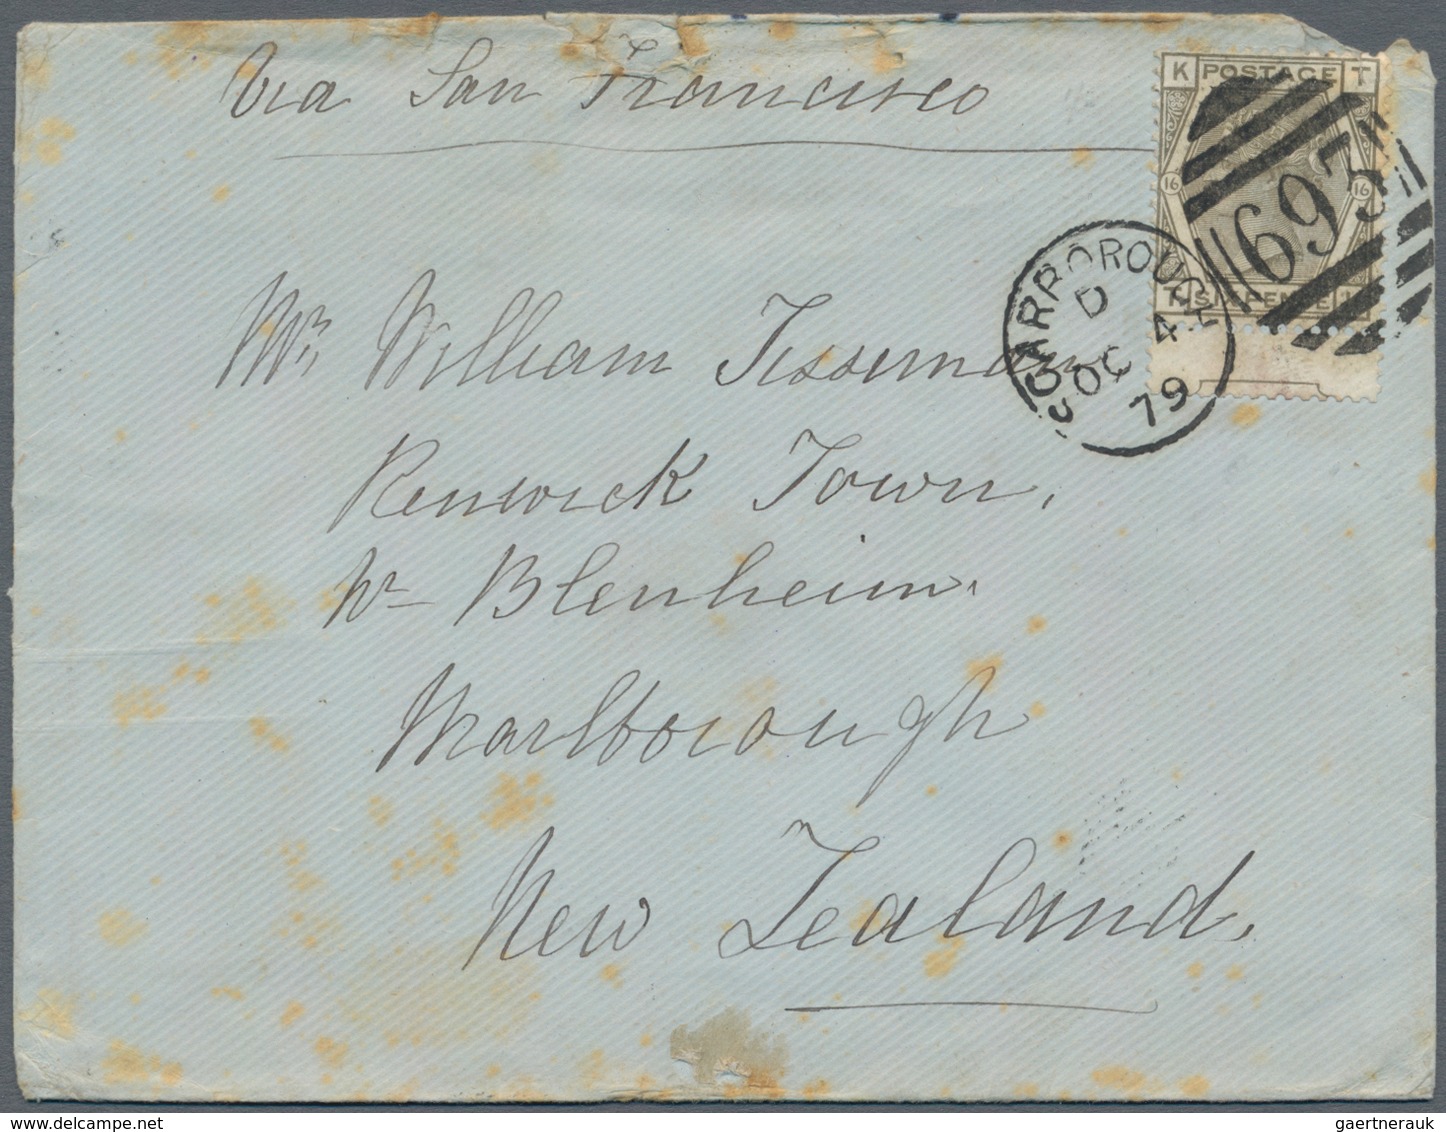 Via San Francisco
K POSTAGE T
16 16
T SIXPENCE K
693
SCARBOROUGH
D
OC 4
79
Mr William Tisseman
Renwick Town,
Nr Blenheim.
Marlborough
New Zealand.
gaertnerauk @ delcampe.net